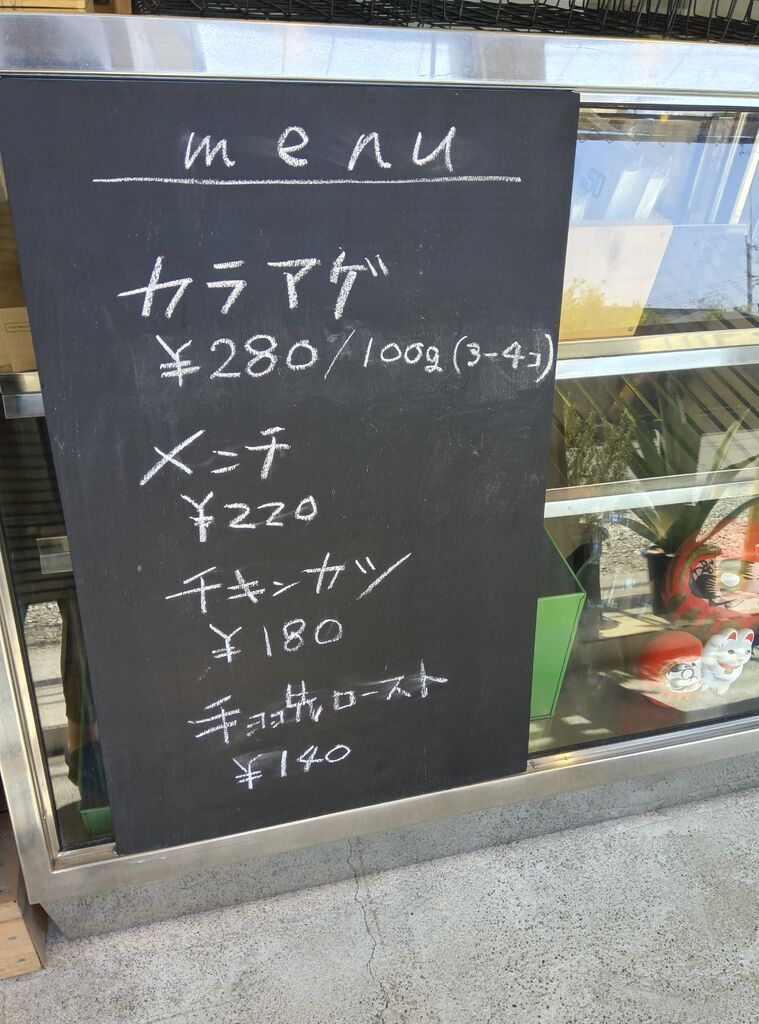 menu
カラアゲ
¥280/100g(3-4コ)
メニチ
¥220
チキンカツ
¥180
ロースト
¥140